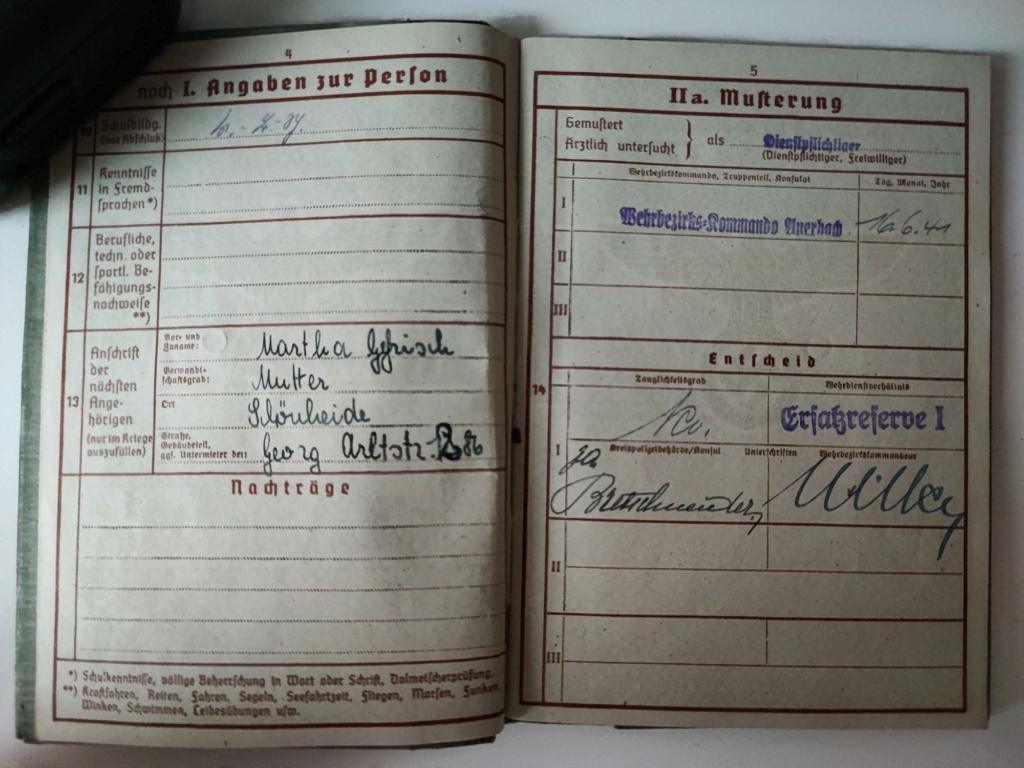 4
noch I. Angaben zur Person
10 Schulbildg. (nur Abschluß)
11 Kenntnisse in Fremd-
sprachen *)
12 Berufliche,
techn. oder
sportl. Be-
fähigungs-
nachweise
**)
13 Anschrift
der
nächsten
Ange-
hörigen
(nur im Kriege
auszufüllen)
Vor- und
Zuname: Martha
Verwandt-
schaftsgrad: Mutter
Ort Schönheide
Straße,
Gebäudeteil,
ggf. Untermieter bei: Georg Arltstr.
Nachträge
*) Schulkenntnisse, völlige Beherrschung in Wort oder Schrift, Dolmetscherprüfung.
**) Kraftfahren, Reiten, Fahren, Segeln, Seefahrtzeit, Fliegen, Morsen, Funken,
Winken, Schwimmen, Leibesübungen usw.
5
IIa. Musterung
Gemustert
Ärztlich untersucht } als Dienstpflichtiger
(Dienstpflichtiger, Freiwilliger)
Wehrbezirkskommando, Truppenteil, Konsulat Tag, Monat, Jahr
I Wehrbezirks-Kommando Auerbach 16.6.41
II
III
Entscheid
14
Tauglichkeitsgrad Wehrdienstverhältnis
I kv. Ersatzreserve I
Kreispolizeibehörde/Konsul Unterschriften Wehrbezirkskommandeur
Bretschneider
II
III